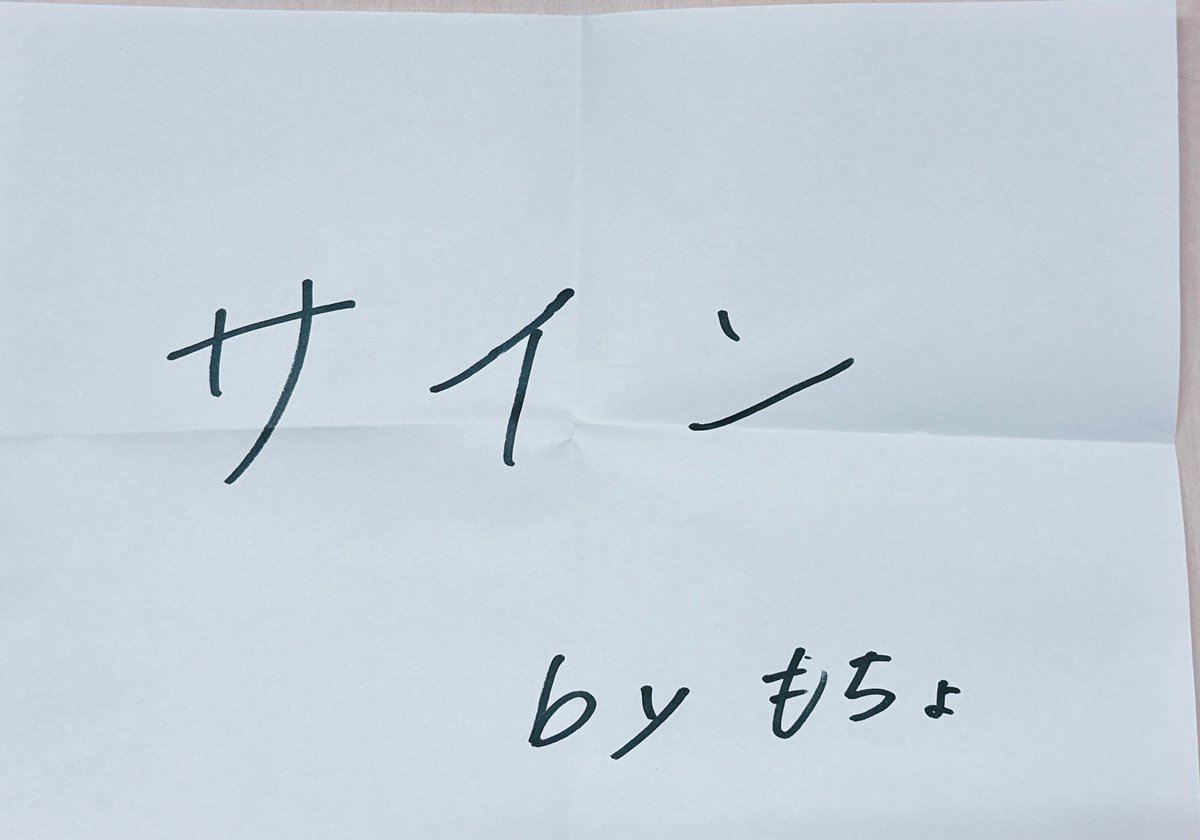 サイン
by もちょ